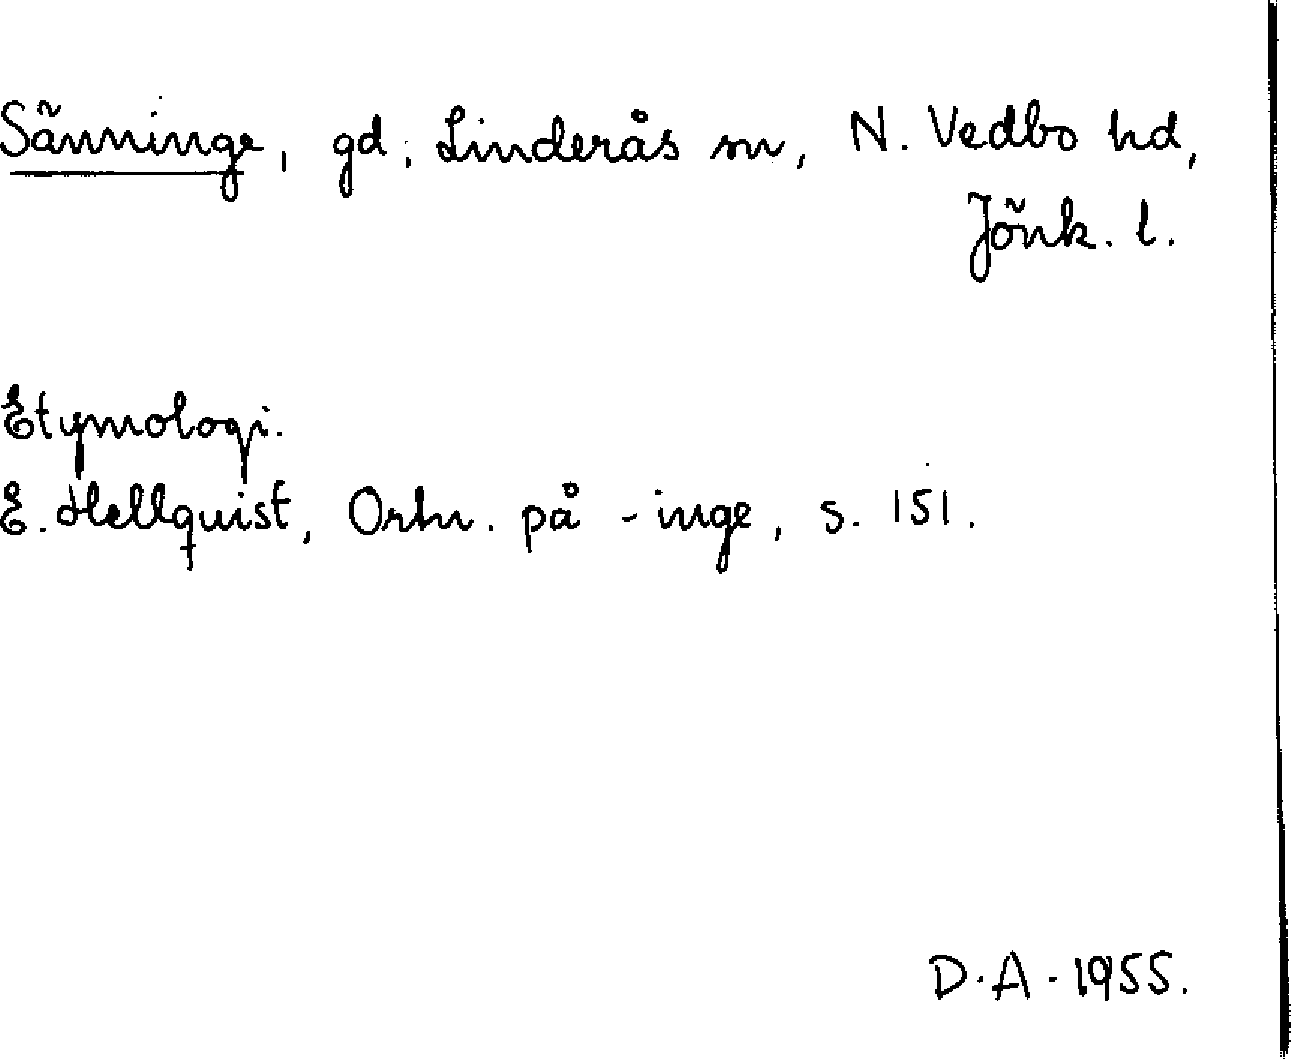 Sänninge, gd, Linderås sn, N. Vedbo hd,
Jönk. l.
Etymologi.
E. Hellquist, Ortn. på -inge, s. 151.
D.A. 1955.